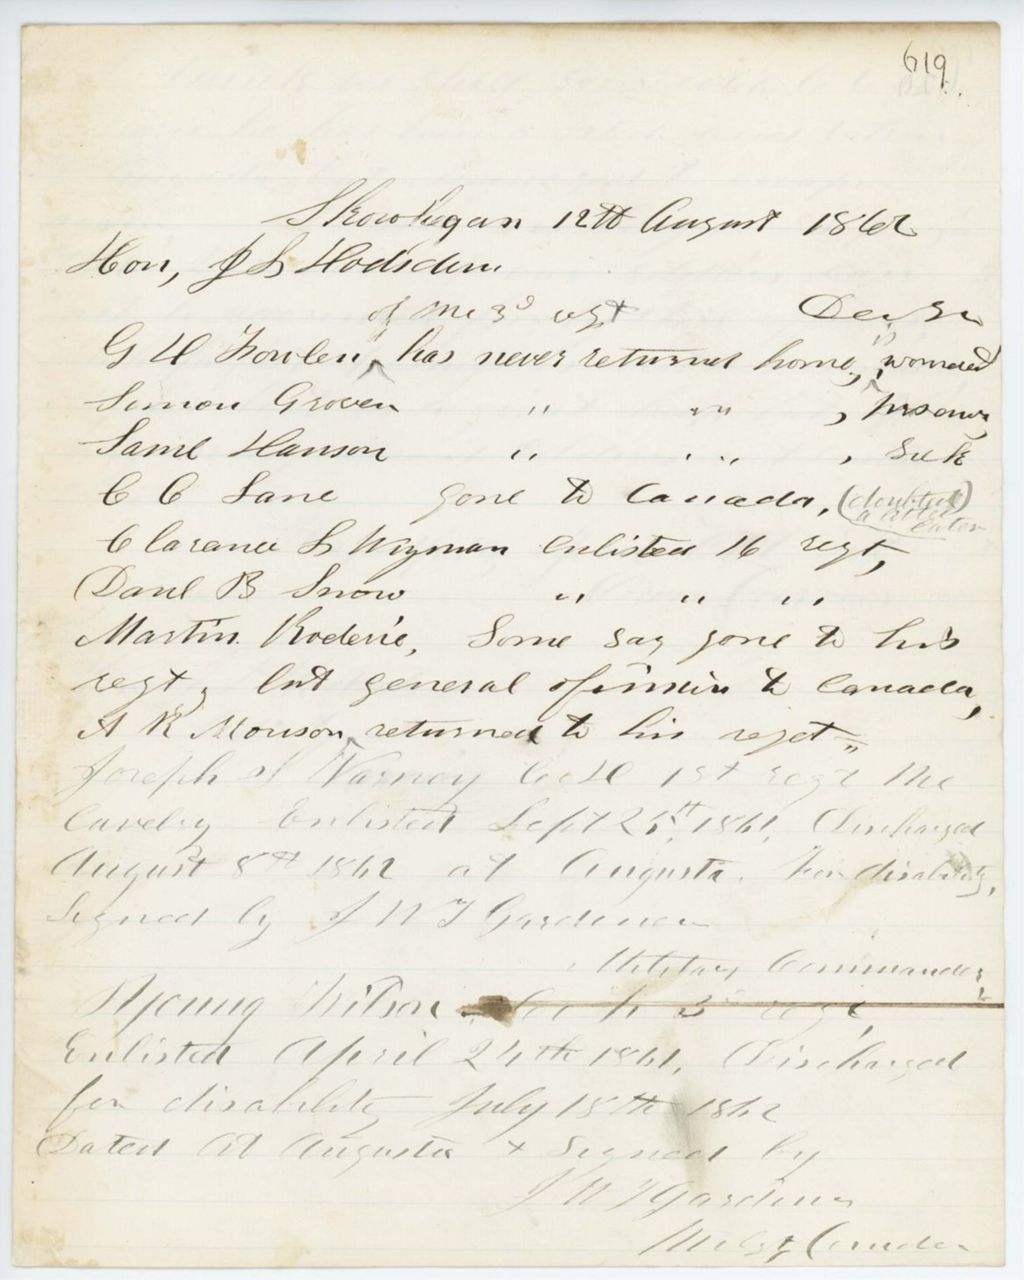 619.
Skowhegan 12th August 1862
Hon, J L Hodsdon
Dear Sir
of Me 3d regt
G H Fowler has never returned home, is wounded
Simon Grover " " " , prisoner,
Saml Hanson " " " , Sick
C C Lane gone to Canada, (doubtful)
Clarance L Wyman enlisted 16 regt,
Danl B Snow " " "
Martin Roderic, Some say gone to his
regt, but general opinion to Canada,
A R Monson returned to his regt "
Joseph S Varney Co H 1st regt Me
Cavelry Enlisted Sept 25th, 1861, Discharged
August 8th 1862 at Augusta. For disability,
Signed by J W T Gardiner
Military Commander,
Young Wilson Co 3d regt,
Enlisted April 24th 1861, Discharged
for disability July 18th 1862
Dated At Augusta & Signed by
J W T Gardiner